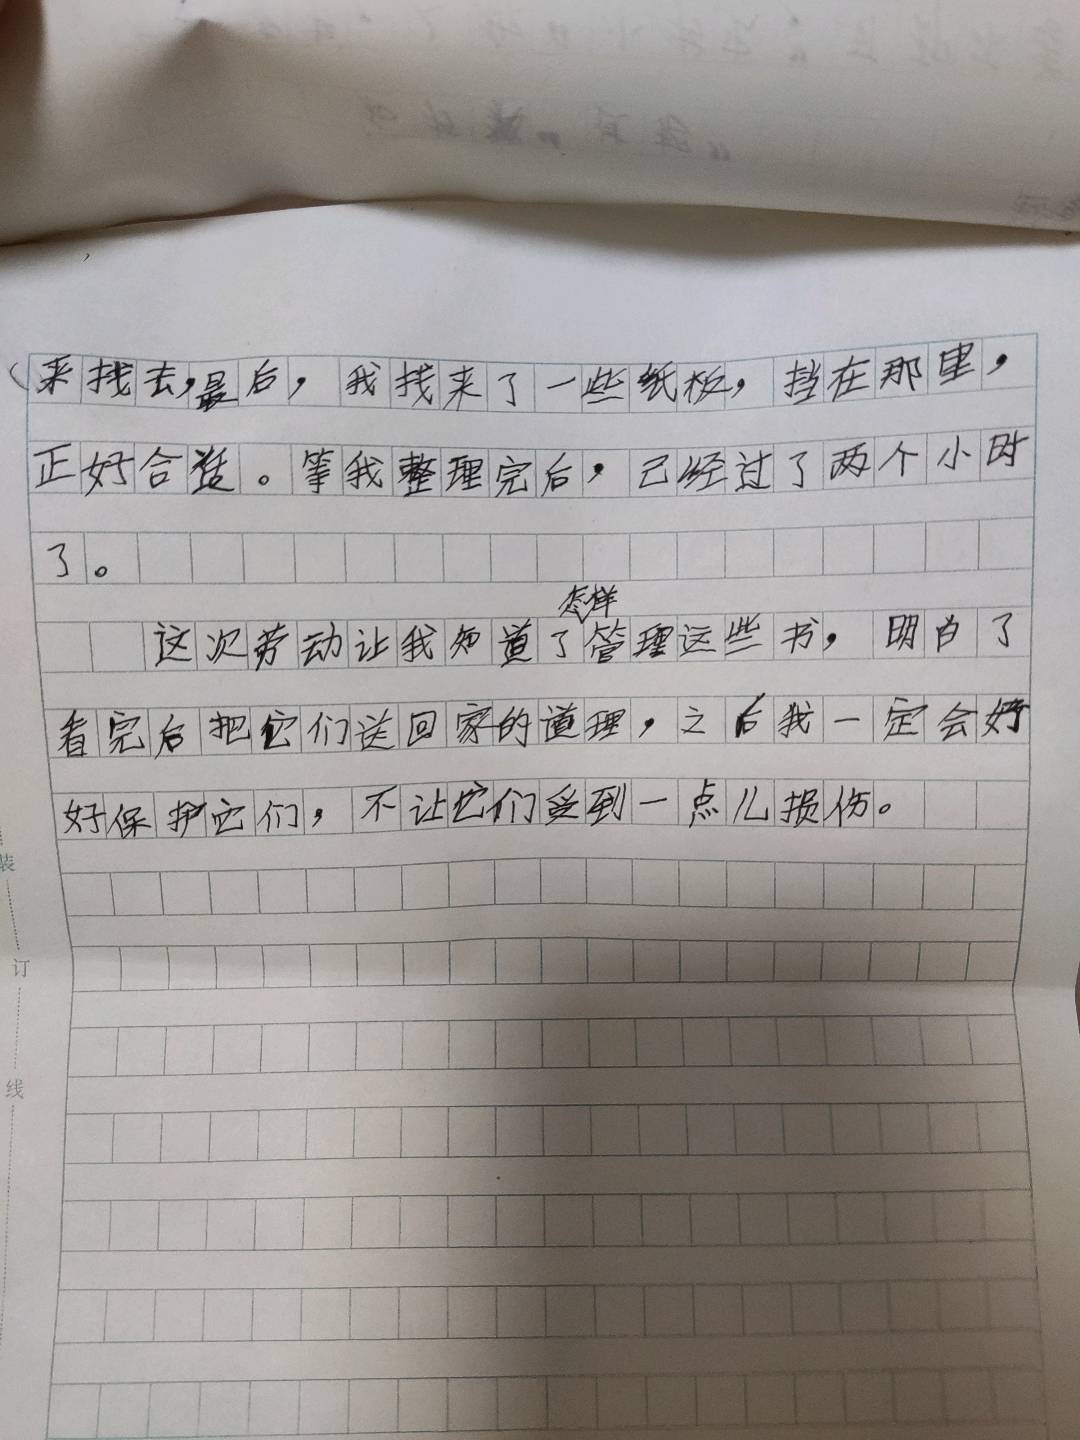 来找去,最后,我找来了一些纸板,挡在那里,
正好合适。等我整理完后,已经过了两个小时
了。
怎样
这次劳动让我知道了管理这些书,明白了
看完后把它们送回家的道理,之后我一定会好
好保护它们,不让它们受到一点儿损伤。
装
订
线